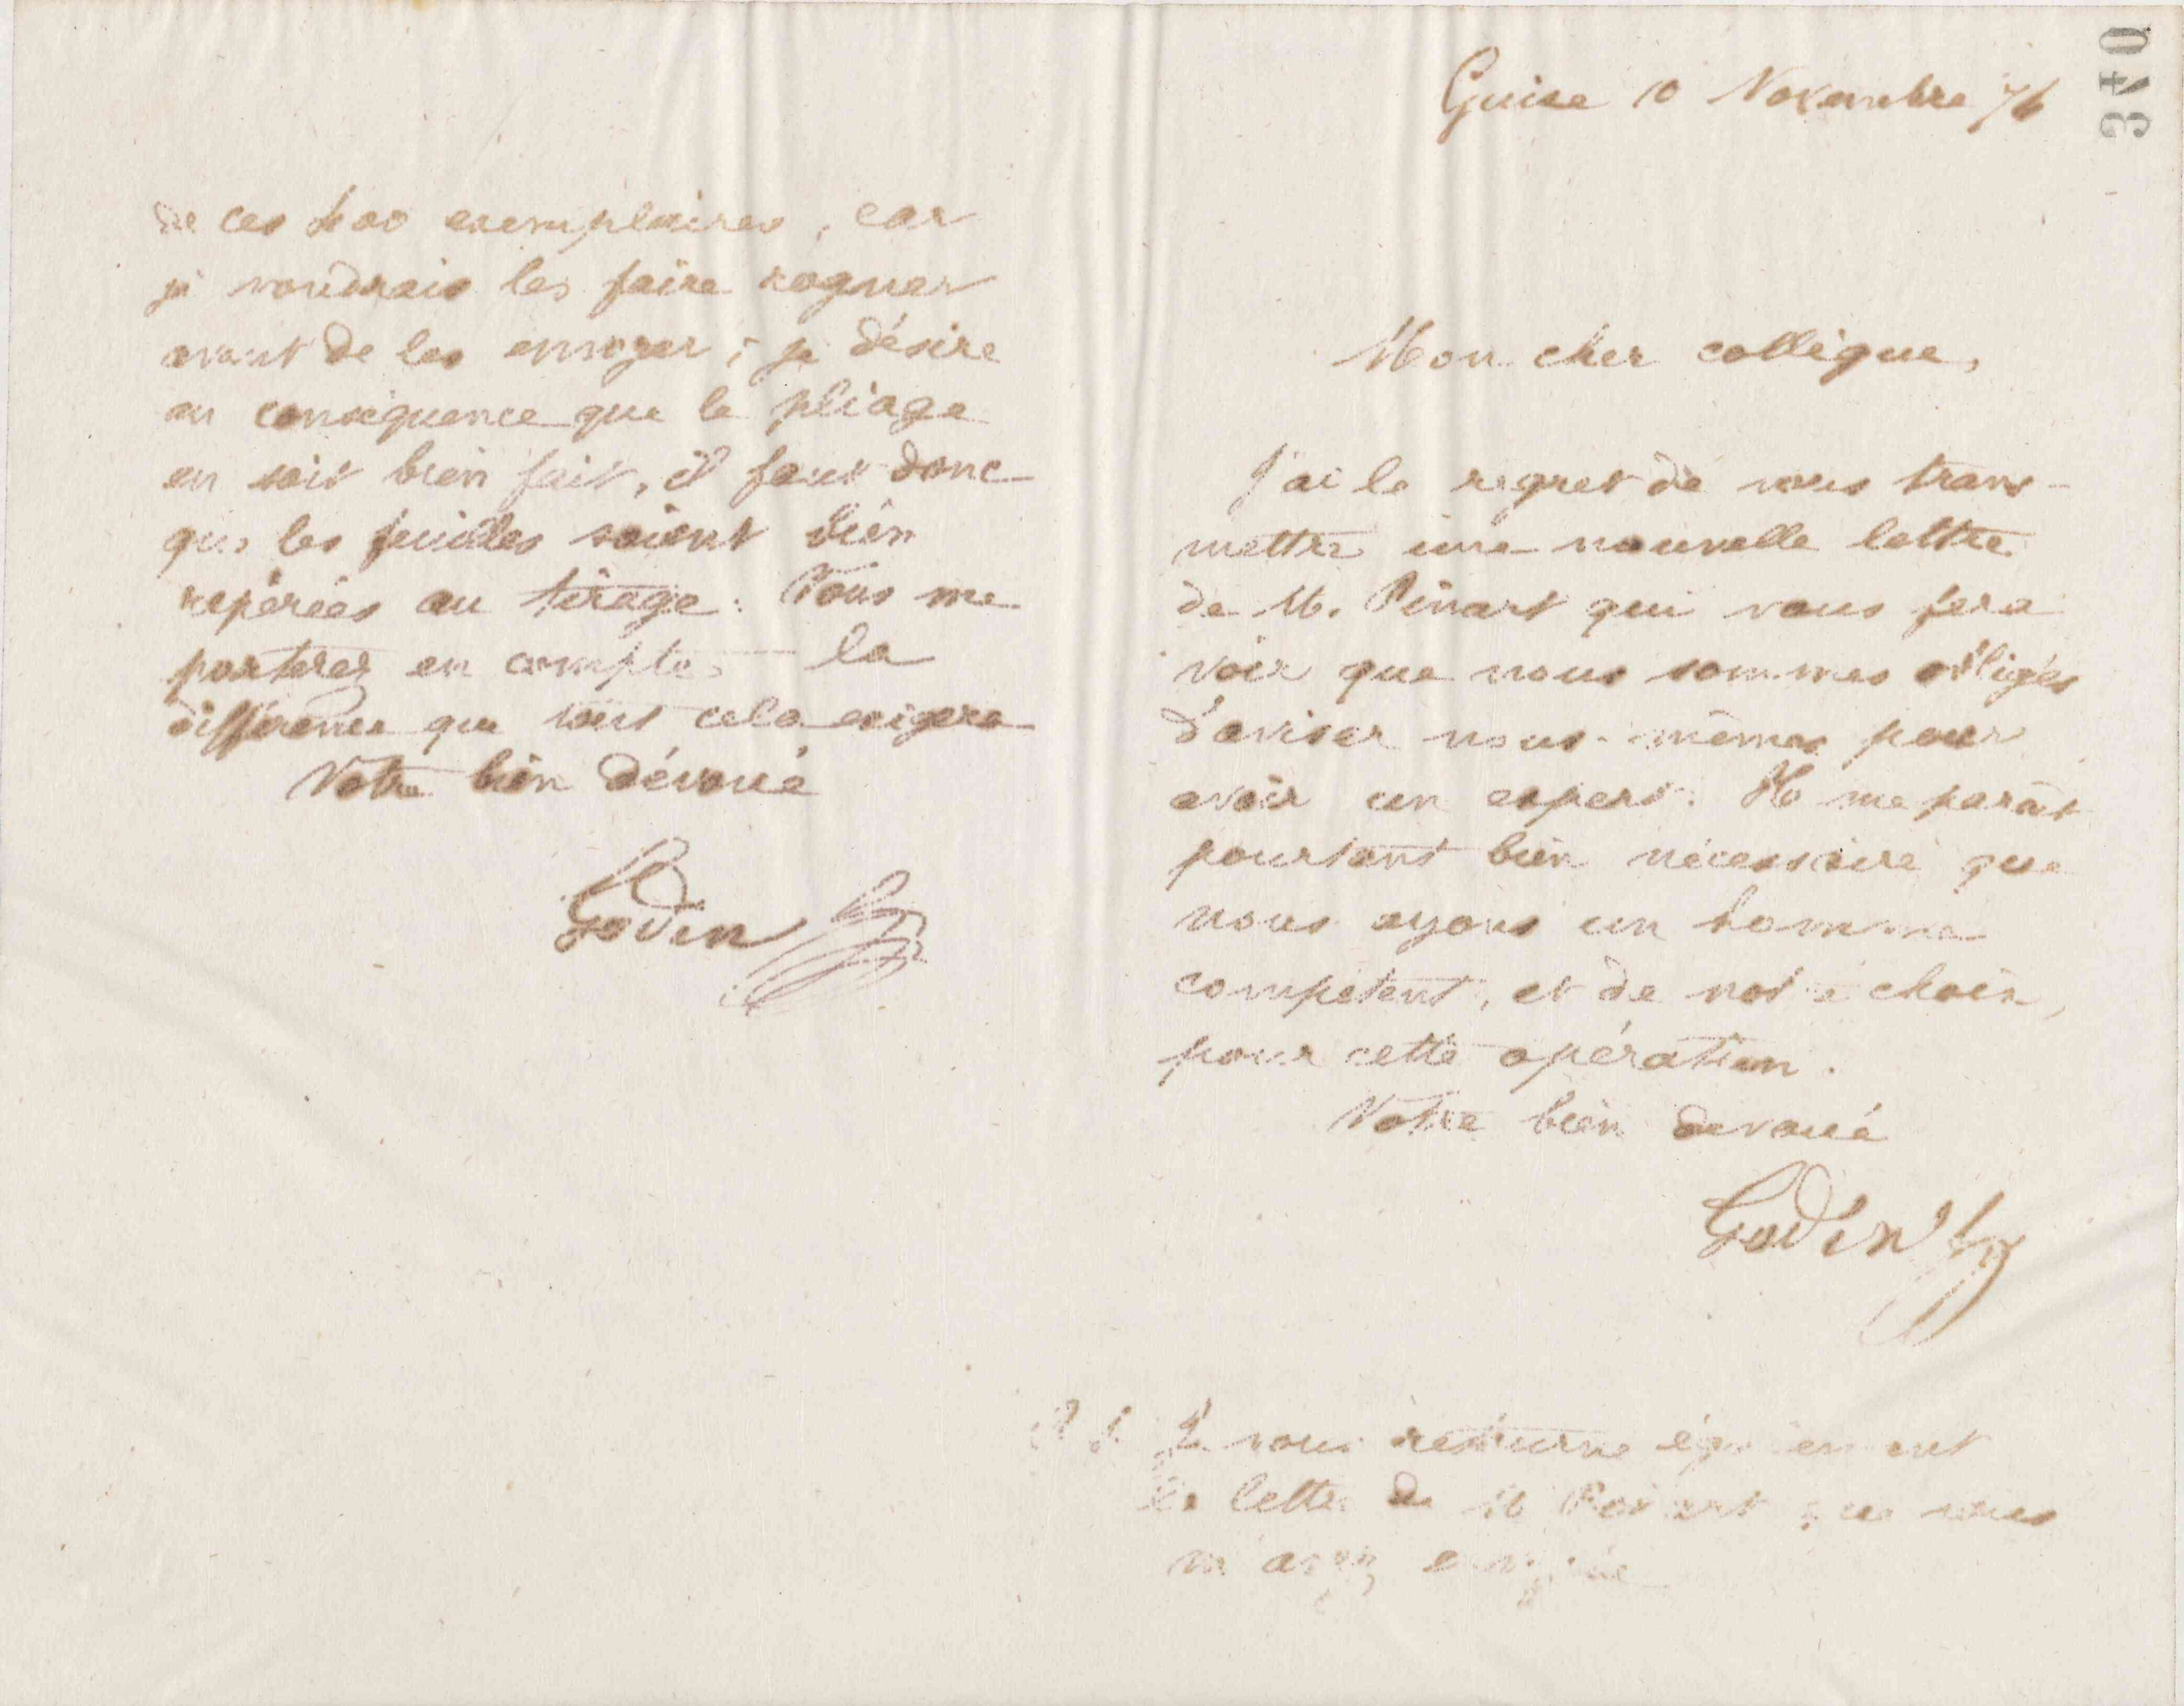 de ces 400 exemplaires, car
je voudrais les faire rogner
avant de les envoyer ; je désire
en conséquence que le pliage
en soit bien fait, il faut donc
que les feuilles soient bien
repérées au tirage. Vous me
porterez en compte la
différence que tout cela exigera
Votre bien dévoué
Godin
Guise 10 Novembre 76
Mon cher collègue,
J'ai le regret de vous trans-
mettre une nouvelle lettre
de M. Pinart qui vous fera
voir que nous sommes obligés
d'aviser nous-mêmes pour
avoir un expert. Il me paraît
pourtant bien nécessaire que
nous ayons un homme
compétent, et de notre choix,
pour cette opération.
Votre bien dévoué
Godin
P. S. Je vous retourne également
la lettre de M que vous
m'avez envoyée